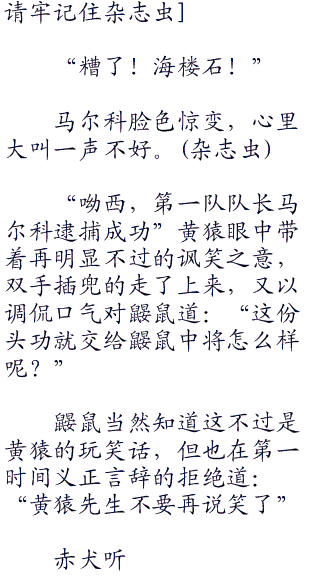 请牢记住杂志虫]
“糟了！海楼石！”
马尔科脸色惊变，心里
大叫一声不好。(杂志虫)
“呦西，第一队队长马
尔科逮捕成功”黄猿眼中带
着再明显不过的讽笑之意，
双手插兜的走了上来，又以
调侃口气对鼹鼠道：“这份
头功就交给鼹鼠中将怎么样
呢？”
鼹鼠当然知道这不过是
黄猿的玩笑话，但也在第一
时间义正言辞的拒绝道：
“黄猿先生不要再说笑了”
赤犬听